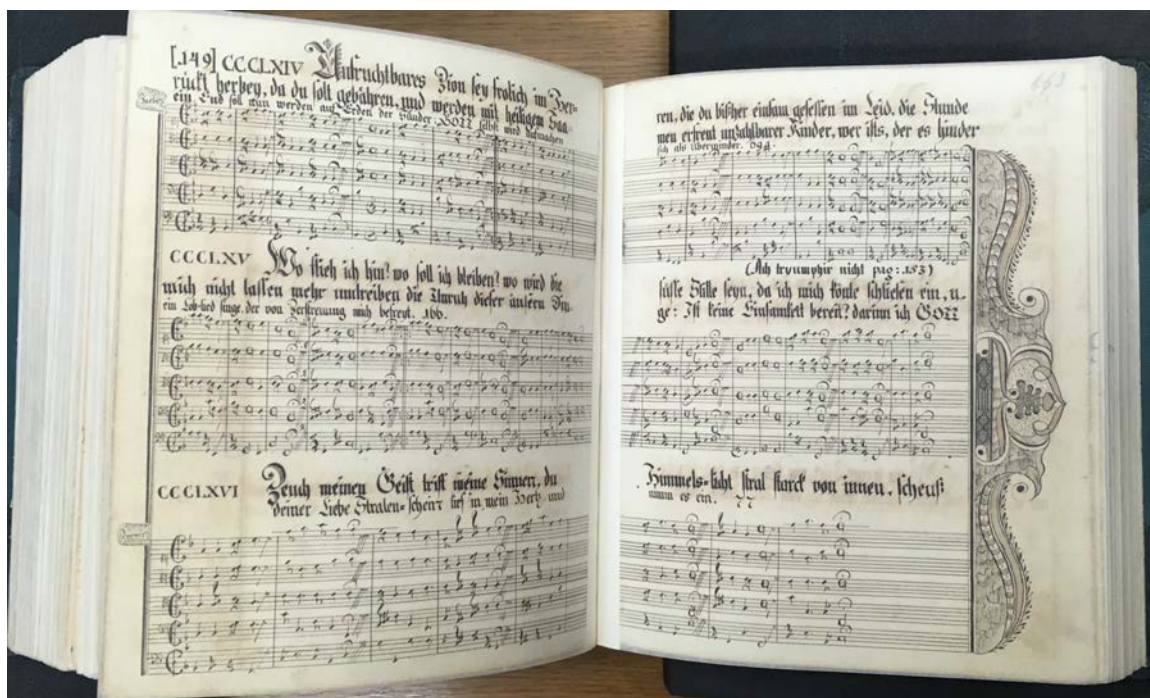 [149] CCCLXIV Unfruchtbares Zion sey frolich im Her-
rückt herbey, da du solt gebähren, und werden mit heiligem Saa-
ein End soll nun werden auf Erden der Sünder, GOTT selbst wird
CCCLXV Wo flieh ich hin? wo soll ich bleiben? wo wird die
mich nicht lassen mehr umtreiben die Unruh dieser äusern Din-
ein Lob-lied singe, der von Zerstreuung mich befreyt. 166.
CCCLXVI Zeuch meinen Geist triff meine Sinnen, du
deiner Liebe Stralen-schein tief in mein Hertz und
ren, die du bißher einsam gesessen im Leid. die Stunde
men erfreut unzahlbarer Kinder, wer ists, der es hinder
sich als überwinder.
(Ach tryumphir nicht pag: 153)
süsse Stille seyn, da ich mich könte schliesen ein, u.
ge: Ist keine Einsamkeit bereit? darinn ich GOTT
Himmels-licht stral starck von innen. scheuß
nimm es ein. 77